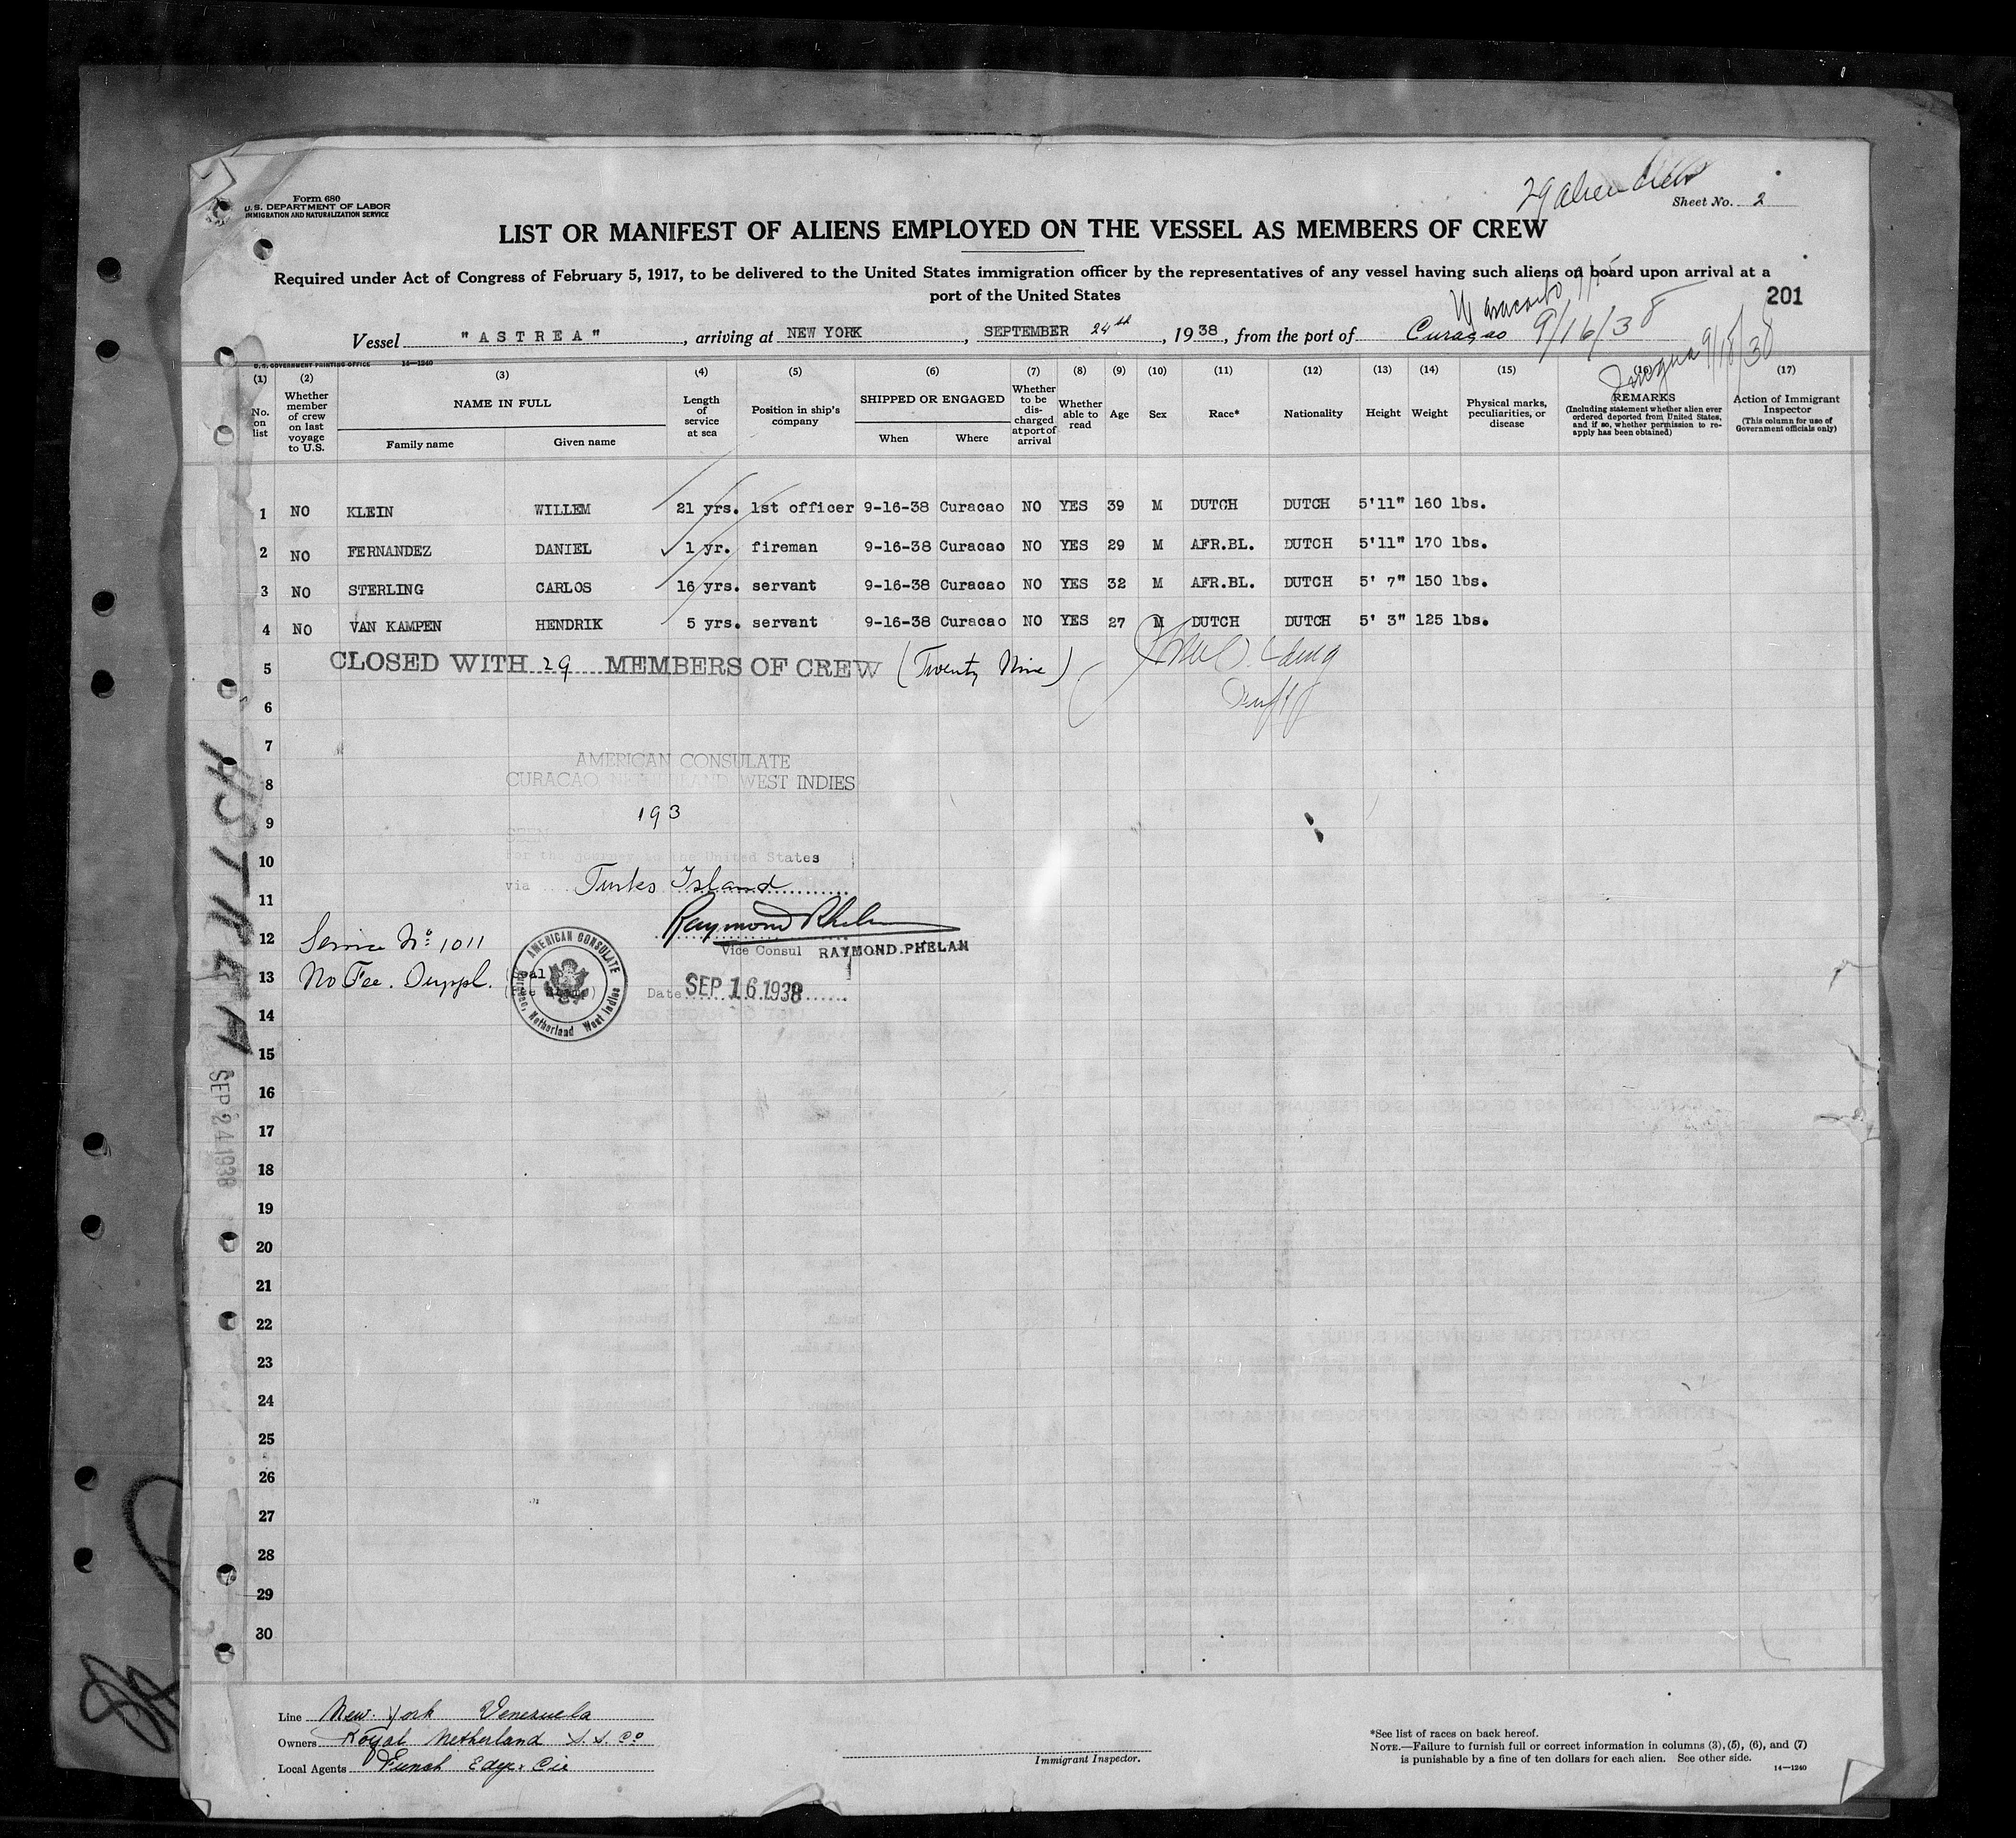 29 alien crew
Form 680
U.S. DEPARTMENT OF LABOR
IMMIGRATION AND NATURALIZATION SERVICE
Sheet No. 2
LIST OR MANIFEST OF ALIENS EMPLOYED ON THE VESSEL AS MEMBERS OF CREW
Required under Act of Congress of February 5, 1917, to be delivered to the United States immigration officer by the representatives of any vessel having such aliens on board upon arrival at a
port of the United States
201
Maracaibo
Vessel "ASTREA", arriving at NEW YORK, SEPTEMBER 24th, 1938, from the port of Curaçao 9/16/38
9/18/38
U. S. GOVERNMENT PRINTING OFFICE 14—1240
(1) (2) (3) (4) (5) (6) (7) (8) (9) (10) (11) (12) (13) (14) (15) (16) (17)
No. on list
Whether member of crew on last voyage to U.S.
NAME IN FULL
Family name
Given name
Length of service at sea
Position in ship's company
SHIPPED OR ENGAGED
When
Where
Whether to be discharged at port of arrival
Whether able to read
Age
Sex
Race*
Nationality
Height
Weight
Physical marks, peculiarities, or disease
REMARKS
(Including statement whether alien ever ordered deported from United States, and if so, whether permission to re-apply has been obtained)
Action of Immigrant Inspector
(This column for use of Government officials only)
1 NO KLEIN WILLEM 21 yrs. 1st officer 9-16-38 Curacao NO YES 39 M DUTCH DUTCH 5'11" 160 lbs.
2 NO FERNANDEZ DANIEL 1 yr. fireman 9-16-38 Curacao NO YES 29 M AFR.BL. DUTCH 5'11" 170 lbs.
3 NO STERLING CARLOS 16 yrs. servant 9-16-38 Curacao NO YES 32 M AFR.BL. DUTCH 5' 7" 150 lbs.
4 NO VAN KAMPEN HENDRIK 5 yrs. servant 9-16-38 Curacao NO YES 27 M DUTCH DUTCH 5' 3" 125 lbs.
5 CLOSED WITH 29 MEMBERS OF CREW (Twenty Nine)
6
7
AMERICAN CONSULATE
8 CURACAO NETHERLAND WEST INDIES
9 193
SEEN
10 for the journey to the United States
via Turks Island
11
Raymond Phelan
12 Service No: 1011
Vice Consul RAYMOND.PHELAN
13 No Fee. Duppl.
AMERICAN CONSULATE
Curacao, Netherland West Indies
Date SEP 16 1938
14
15
16
17
18
19
20
21
22
23
24
25
26
27
28
29
30
ASTREA
SEP 24 1938
Line New York Venezuela
Owners Royal Netherland S. S. Co
Local Agents Funch Edye & Cie
Immigrant Inspector.
*See list of races on back hereof.
NOTE.—Failure to furnish full or correct information in columns (3), (5), (6), and (7)
is punishable by a fine of ten dollars for each alien. See other side.
14—1240